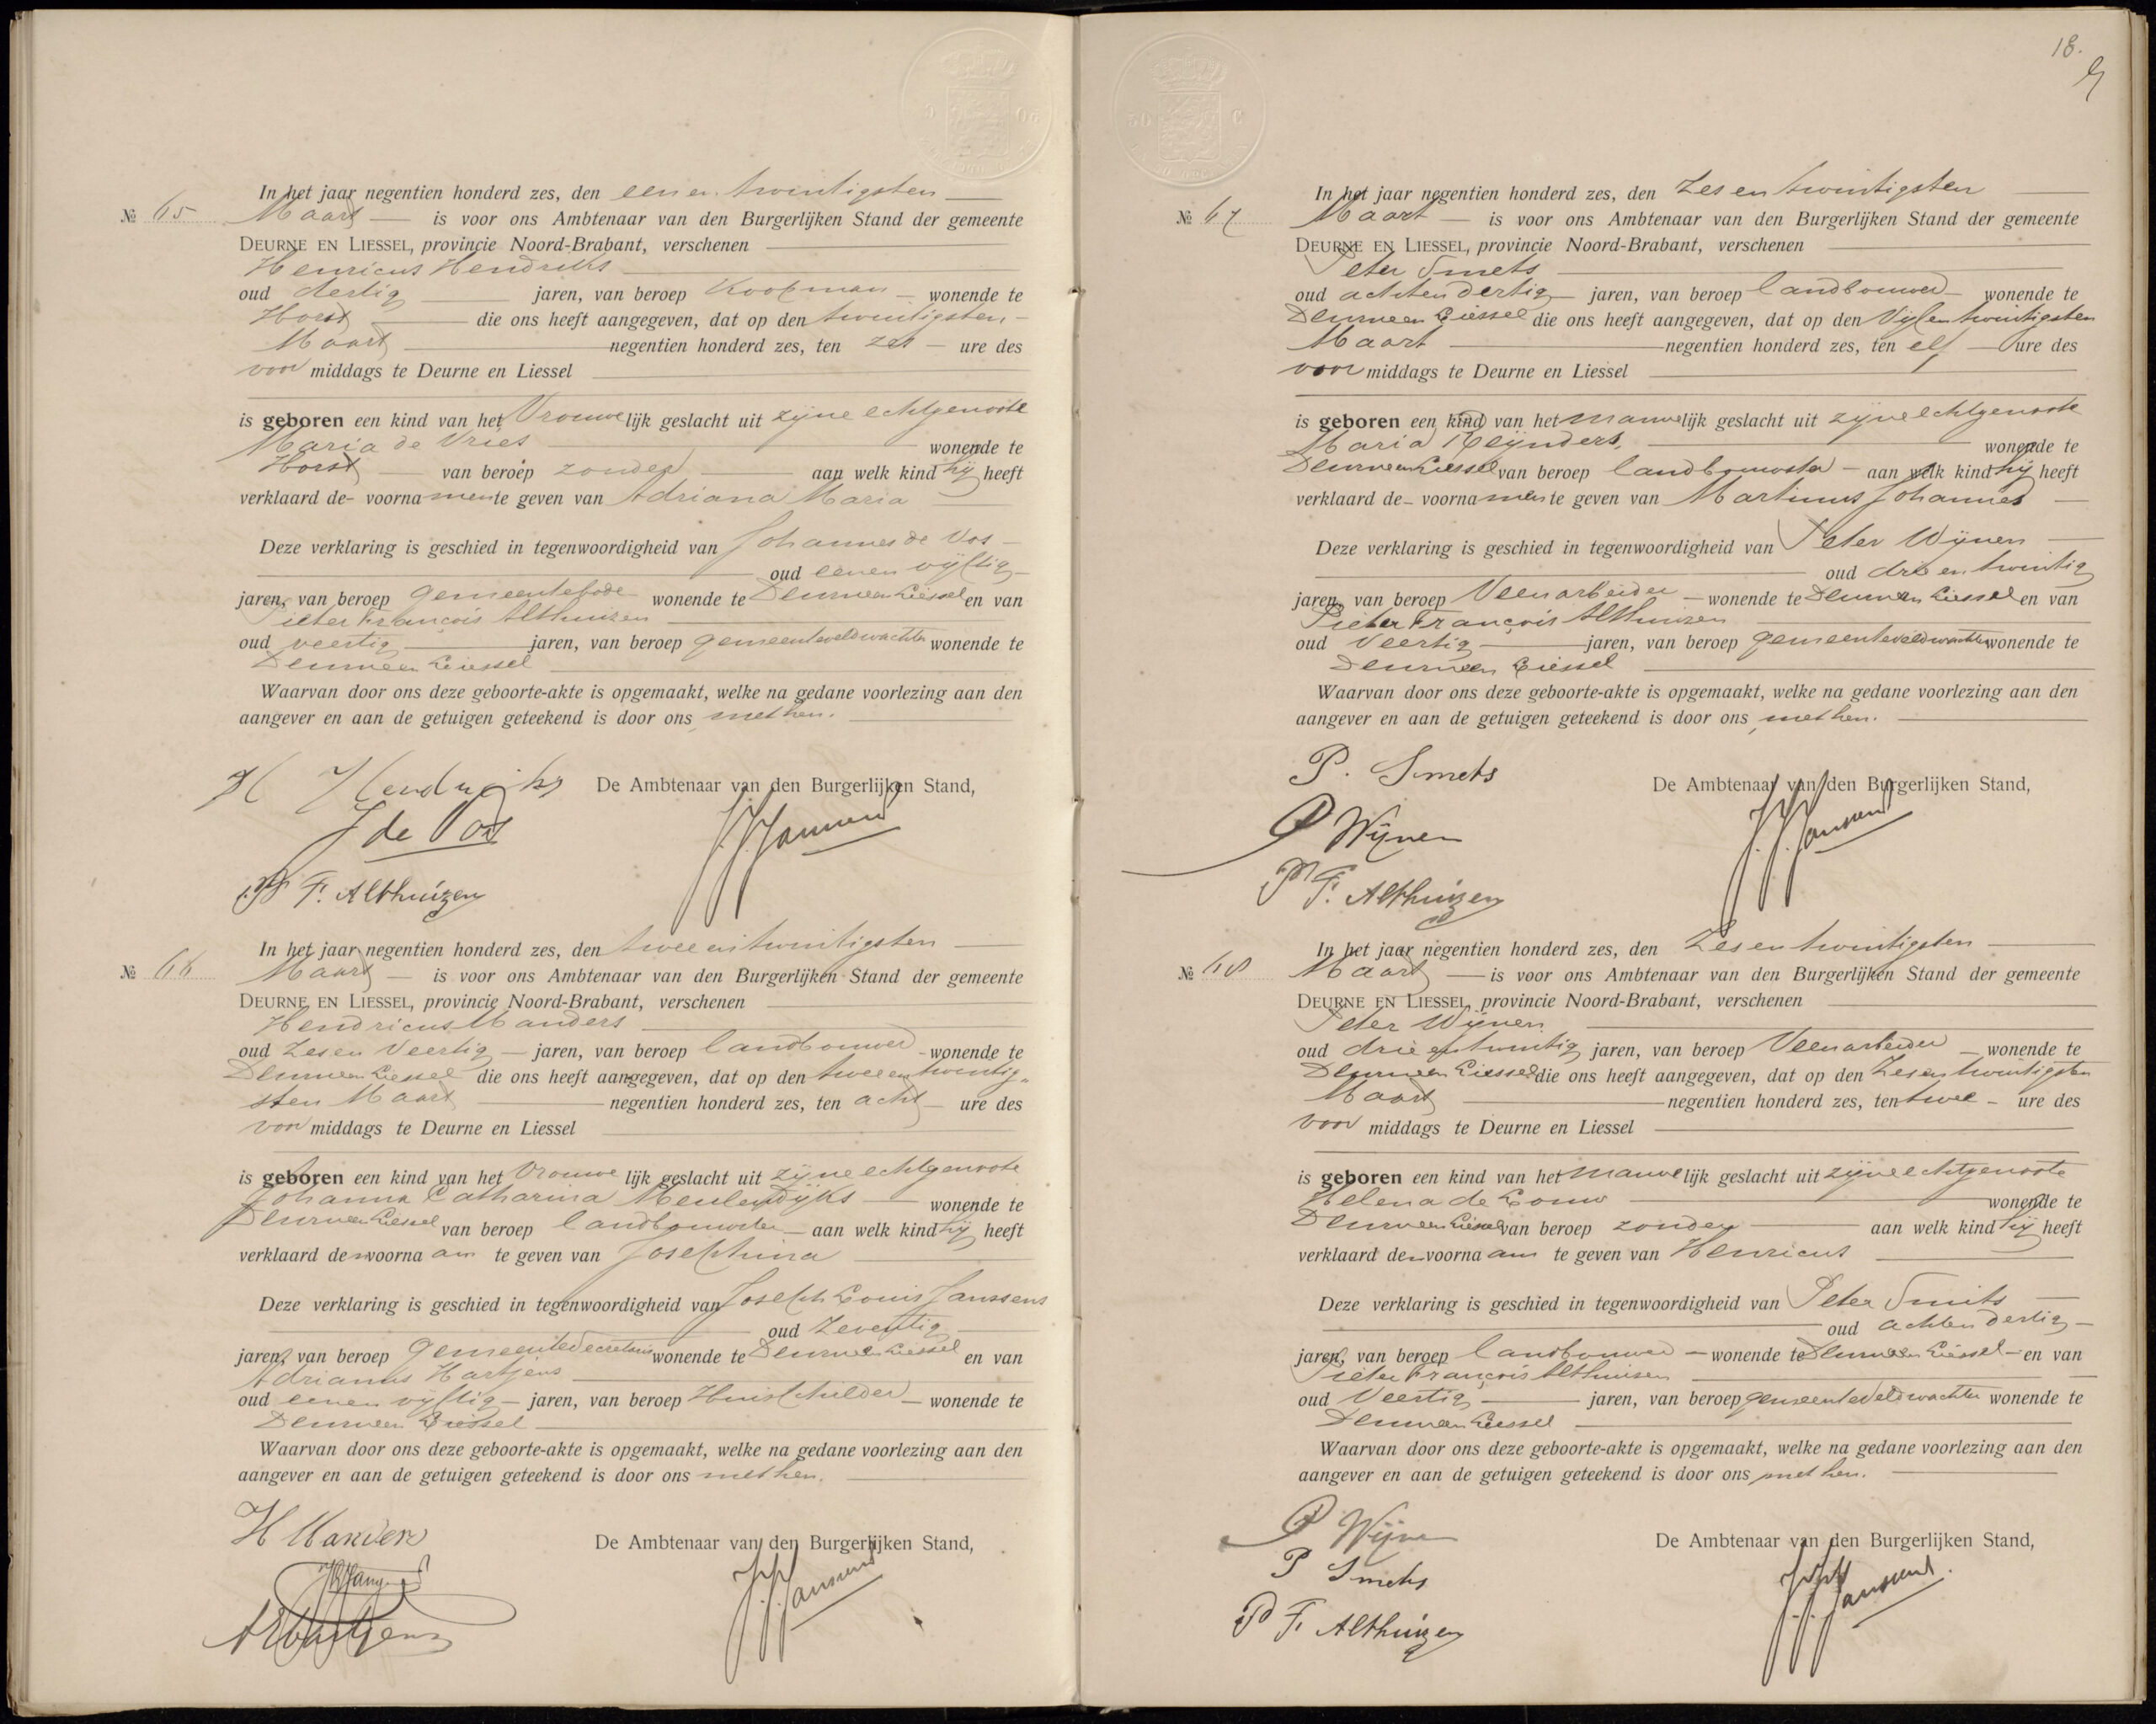 In het jaar negentien honderd zes, den een en twintigsten
№ 65 Maart is voor ons Ambtenaar van den Burgerlijken Stand der gemeente
DEURNE EN LIESSEL, provincie Noord-Brabant, verschenen
Henricus Hendriks
oud dertig jaren, van beroep Koopman wonende te
Horst die ons heeft aangegeven, dat op den twintigsten
Maart negentien honderd zes, ten zes ure des
voor middags te Deurne en Liessel
is geboren een kind van het Vrouwe lijk geslacht uit zijne echtgenoote
Maria de Vries wonende te
Horst van beroep zonder aan welk kind hij heeft
verklaard de voornamen te geven van Adriana Maria
Deze verklaring is geschied in tegenwoordigheid van Johannes de Vos
oud een en vijftig
jaren, van beroep gemeentebode wonende te Deurne en Liessel en van
Pieter François Althuizen
oud veertig jaren, van beroep gemeenteveldwachter wonende te
Deurne en Liessel
Waarvan door ons deze geboorte-akte is opgemaakt, welke na gedane voorlezing aan den
aangever en aan de getuigen geteekend is door ons, met hen.
De Ambtenaar van den Burgerlijken Stand,
H Hendriks
J de Vos
J.J. Janssens
P F. Althuizen
In het jaar negentien honderd zes, den twee en twintigsten
№ 66 Maart is voor ons Ambtenaar van den Burgerlijken Stand der gemeente
DEURNE EN LIESSEL, provincie Noord-Brabant, verschenen
Hendricus Manders
oud Zes en Veertig jaren, van beroep landbouwer wonende te
Deurne en Liessel die ons heeft aangegeven, dat op den twee en twintig-
sten Maart negentien honderd zes, ten acht ure des
voor middags te Deurne en Liessel
is geboren een kind van het Vrouwe lijk geslacht uit zijne echtgenoote
Johanna Catharina Meulendijks wonende te
Deurne en Liessel van beroep landbouwster aan welk kind hij heeft
verklaard den voorna am te geven van Josephina
Deze verklaring is geschied in tegenwoordigheid van Joseph Louis Janssens
oud Zeventig
jaren, van beroep Gemeentesecretaris wonende te Deurne en Liessel en van
Adrianus Hartjens
oud een en vijftig jaren, van beroep Huisschilder wonende te
Deurne en Liessel
Waarvan door ons deze geboorte-akte is opgemaakt, welke na gedane voorlezing aan den
aangever en aan de getuigen geteekend is door ons met hen.
H Manders
De Ambtenaar van den Burgerlijken Stand,
J.J. Janssens
18.
In het jaar negentien honderd zes, den Zes en twintigsten
№ 67 Maart is voor ons Ambtenaar van den Burgerlijken Stand der gemeente
DEURNE EN LIESSEL, provincie Noord-Brabant, verschenen
Peter Smets
oud acht en dertig jaren, van beroep landbouwer wonende te
Deurne en Liessel die ons heeft aangegeven, dat op den Vijf en twintigsten
Maart negentien honderd zes, ten elf ure des
voor middags te Deurne en Liessel
is geboren een kind van het mannelijk geslacht uit zijne echtgenoote
Maria Reijnders wonende te
Deurne en Liessel van beroep landbouwster aan welk kind hij heeft
verklaard de voornamen te geven van Martinus Johannes
Deze verklaring is geschied in tegenwoordigheid van Peter Wijnen
oud drie en twintig
jaren, van beroep Veenarbeider wonende te Deurne en Liessel en van
Pieter François Althuizen
oud Veertig jaren, van beroep gemeenteveldwachter wonende te
Deurne en Liessel
Waarvan door ons deze geboorte-akte is opgemaakt, welke na gedane voorlezing aan den
aangever en aan de getuigen geteekend is door ons, met hen.
P. Smets
De Ambtenaar van den Burgerlijken Stand,
P Wijnen
J.J. Janssens
P F. Althuizen
In het jaar negentien honderd zes, den Zes en twintigsten
№ 68 Maart is voor ons Ambtenaar van den Burgerlijken Stand der gemeente
DEURNE EN LIESSEL, provincie Noord-Brabant, verschenen
Peter Wijnen
oud drie en twintig jaren, van beroep Veenarbeider wonende te
Deurne en Liessel die ons heeft aangegeven, dat op den Zes en twintigsten
Maart negentien honderd zes, ten twee ure des
voor middags te Deurne en Liessel
is geboren een kind van het mannelijk geslacht uit zijne echtgenoote
Helena de Louw wonende te
Deurne en Liessel van beroep zonder aan welk kind hij heeft
verklaard den voorna am te geven van Henricus
Deze verklaring is geschied in tegenwoordigheid van Peter Smits
oud acht en dertig
jaren, van beroep landbouwer wonende te Deurne en Liessel en van
Pieter François Althuizen
oud Veertig jaren, van beroep gemeenteveldwachter wonende te
Deurne en Liessel
Waarvan door ons deze geboorte-akte is opgemaakt, welke na gedane voorlezing aan den
aangever en aan de getuigen geteekend is door ons, met hen.
P Wijnen
De Ambtenaar van den Burgerlijken Stand,
P Smets
J.J. Janssens.
P F. Althuizen